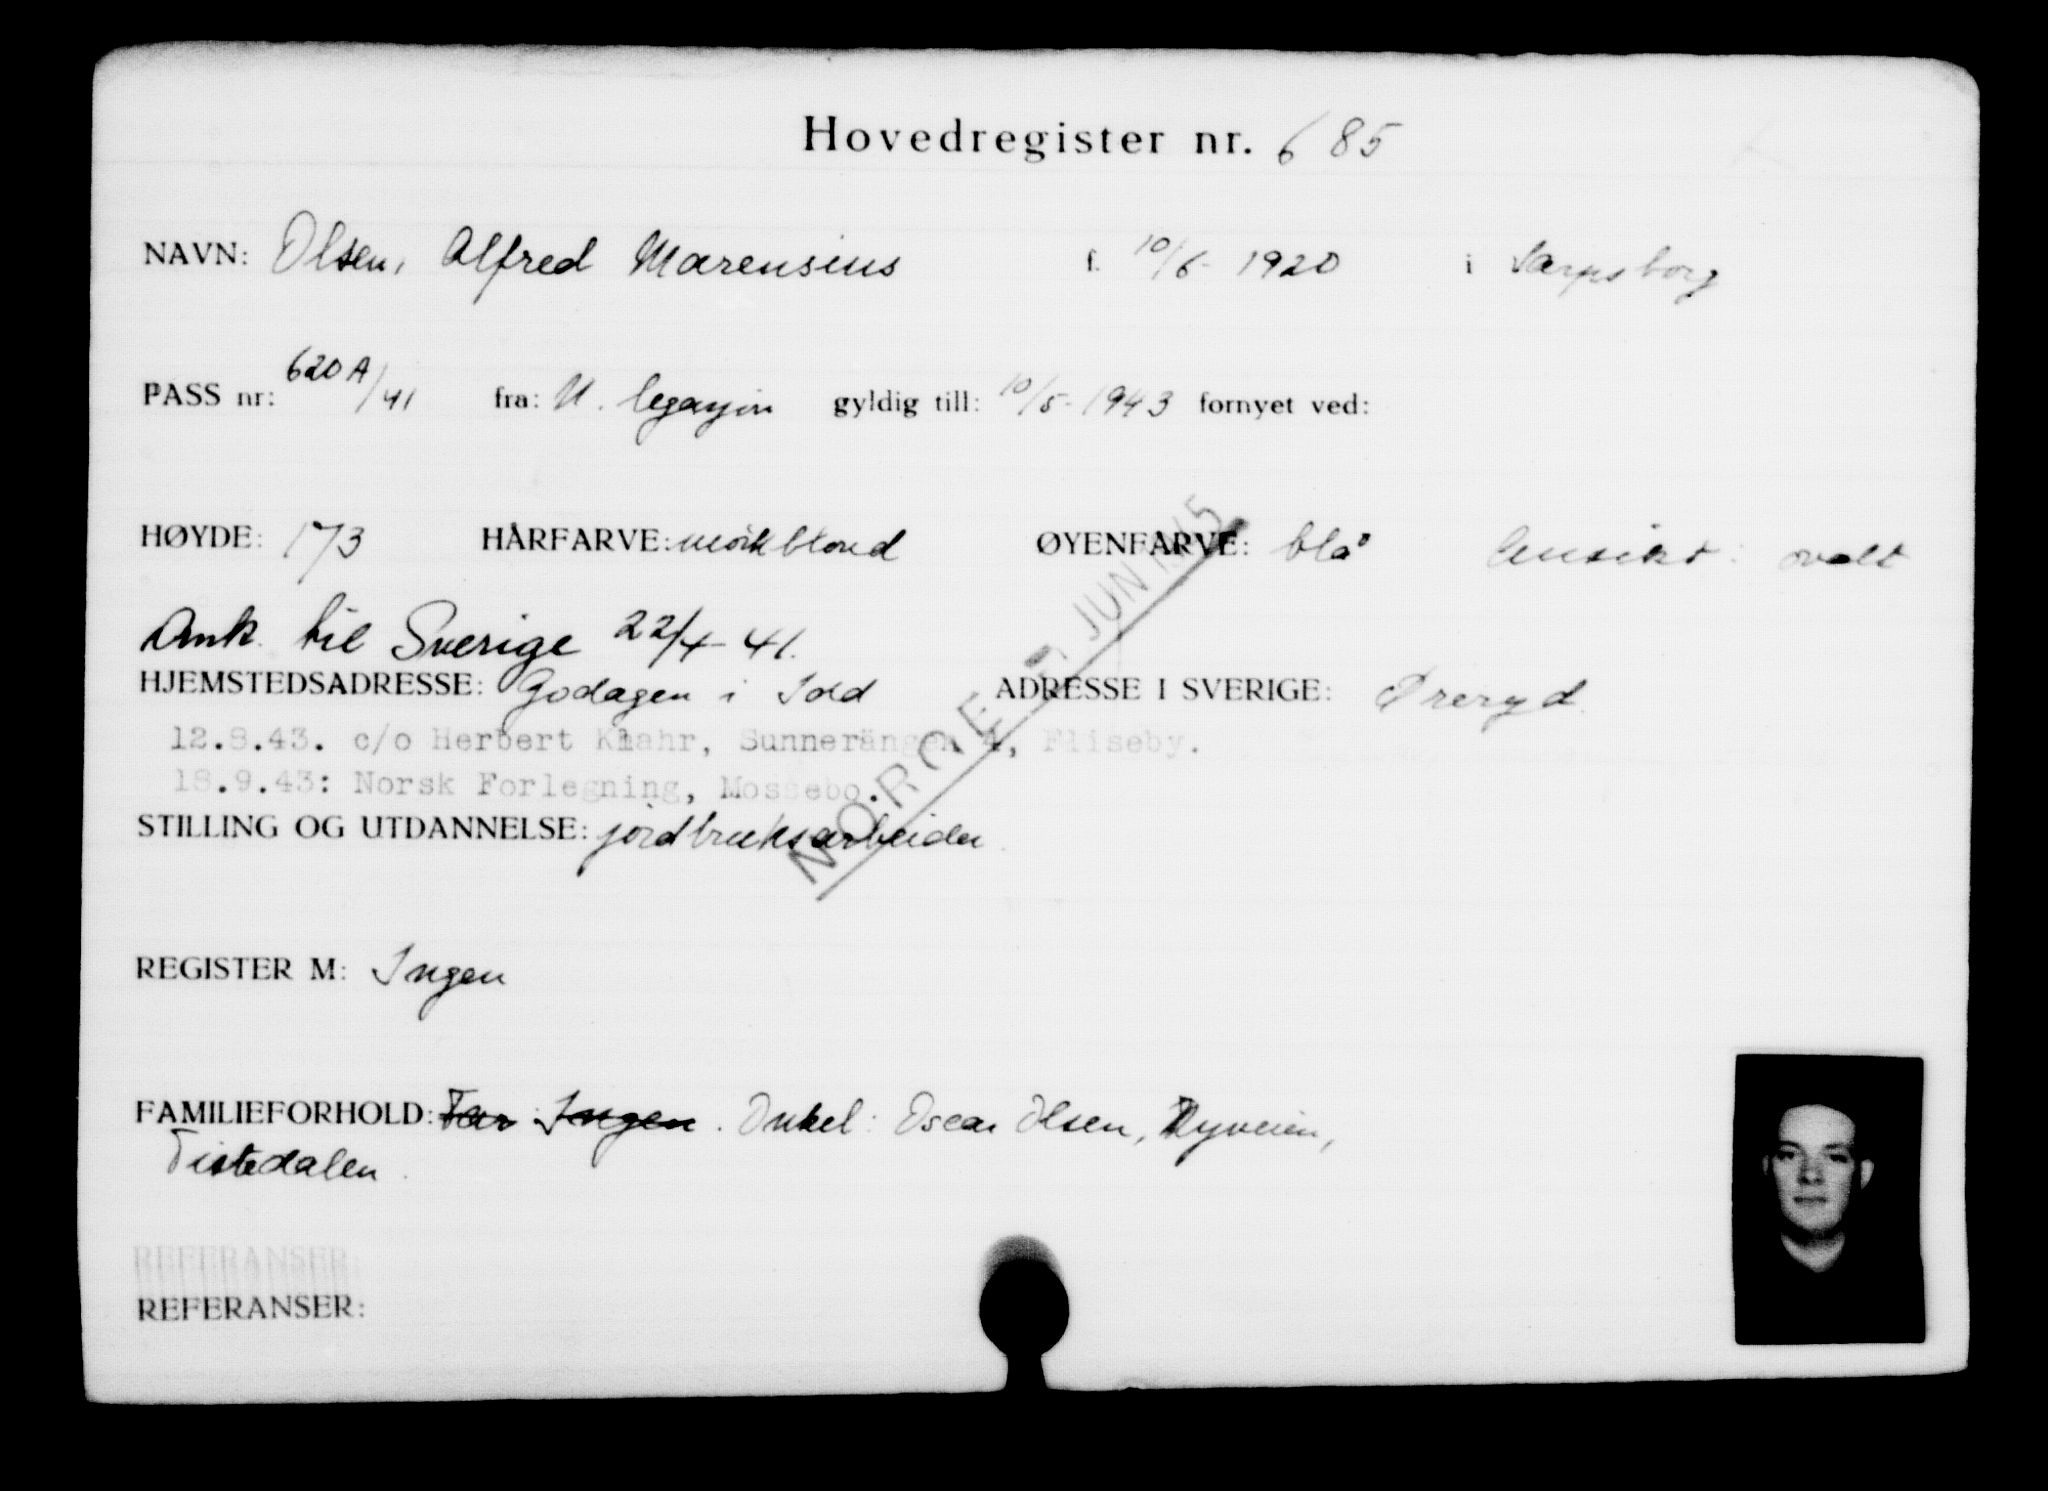 Hovedregister nr. 685
NAVN: Olsen, Alfred Marensius f. 10/6-1920 i Sarpsborg
PASS nr: 620 A/41 fra: N. legasjon gyldig till: 10/5-1943 fornyet ved:
HØYDE: 173 HÅRFARVE: mörkblond ØYENFARVE: blå Ansikt: ovalt
Ank. til Sverige 22/4-41.
HJEMSTEDSADRESSE: Godagen i Idd ADRESSE I SVERIGE: Øreryd
12.8.43. c/o Herbert Klahr, Sunnerängen 4, Fliseby.
18.9.43: Norsk Forlegning, Mossebo.
STILLING OG UTDANNELSE: jordbruksarbeider.
NORGE JUN 1945
REGISTER M: Ingen
FAMILIEFORHOLD: Far Ingen. Onkel: Oscar Olsen, Nyveien,
Tistedalen.
REFERANSER
REFERANSER: